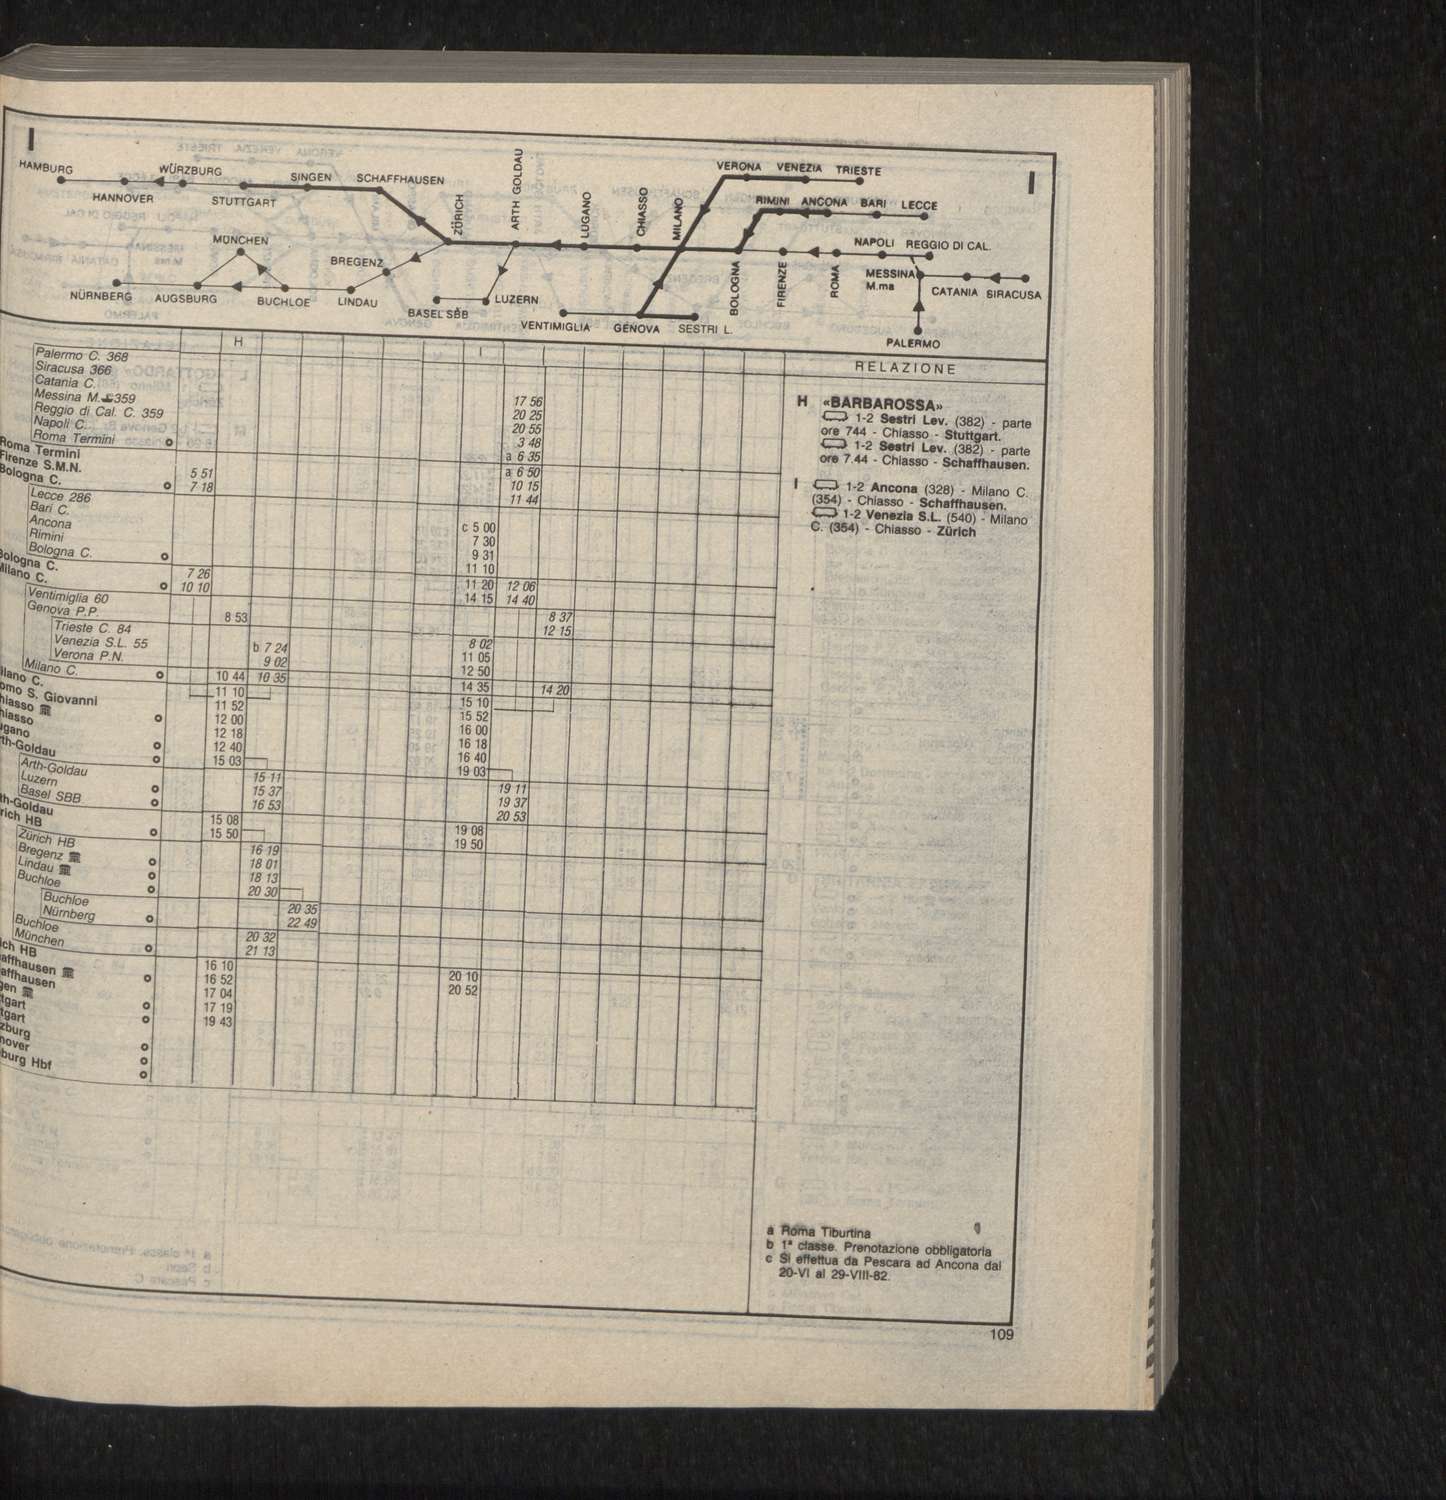 I
I
HAMBURG
HANNOVER
WÜRZBURG
STUTTGART
SINGEN
SCHAFFHAUSEN
ZÜRICH
ARTH GOLDAU
LUGANO
CHIASSO
MILANO
VERONA VENEZIA TRIESTE
RIMINI ANCONA BARI LECCE
MÜNCHEN
BREGENZ
NÜRNBERG AUGSBURG BUCHLOE LINDAU
BASEL SBB
LUZERN
VENTIMIGLIA GENOVA SESTRI L.
BOLOGNA
FIRENZE
ROMA
NAPOLI REGGIO DI CAL.
MESSINA
M.ma
CATANIA SIRACUSA
PALERMO
H I RELAZIONE
Palermo C. 368
Siracusa 366
Catania C.
Messina M. 359 17 56
Reggio di Cal. C. 359 20 25
Napoli C. 20 55
Roma Termini 3 48
a 6 35
Roma Termini a 6 50
Firenze S.M.N. 5 51 10 15
Bologna C. 7 18 11 44
Lecce 286
Bari C. c 5 00
Ancona 7 30
Rimini 9 31
Bologna C. 11 10
Bologna C. 7 26 11 20 12 06
Milano C. 10 10 14 15 14 40
Ventimiglia 60 8 37
Genova P.P. 8 53 12 15
Trieste C. 84 8 02
Venezia S.L. 55 b 7 24 11 05
Verona P.N. 9 02 12 50
Milano C. 10 44 10 35 14 35 14 20
lano C. 11 10 15 10
omo S. Giovanni 11 52 15 52
hiasso 12 00 16 00
hiasso 12 18 16 18
ugano 12 40 16 40
th-Goldau 15 03 19 03
Arth-Goldau 15 11 19 11
Luzern 15 37 19 37
Basel SBB 16 53 20 53
th-Goldau 15 08 19 08
rich HB 15 50 19 50
Zürich HB 16 19
Bregenz 18 01
Lindau 18 13
Buchloe 20 30
Buchloe 20 35
Nürnberg 22 49
Buchloe 20 32
München 21 13
ich HB 16 10 20 10
affhausen 16 52 20 52
affhausen 17 04
gen 17 19
tgart 19 43
tgart
zburg
nover
burg Hbf
H «BARBAROSSA»
1-2 Sestri Lev. (382) - parte
ore 744 - Chiasso - Stuttgart.
1-2 Sestri Lev. (382) - parte
ore 7.44 - Chiasso - Schaffhausen.
I 1-2 Ancona (328) - Milano C.
(354) - Chiasso - Schaffhausen.
1-2 Venezia S.L. (540) - Milano
C. (354) - Chiasso - Zürich
a Roma Tiburtina
b 1ª classe. Prenotazione obbligatoria
c Si effettua da Pescara ad Ancona dal
20-VI al 29-VIII-82.
109